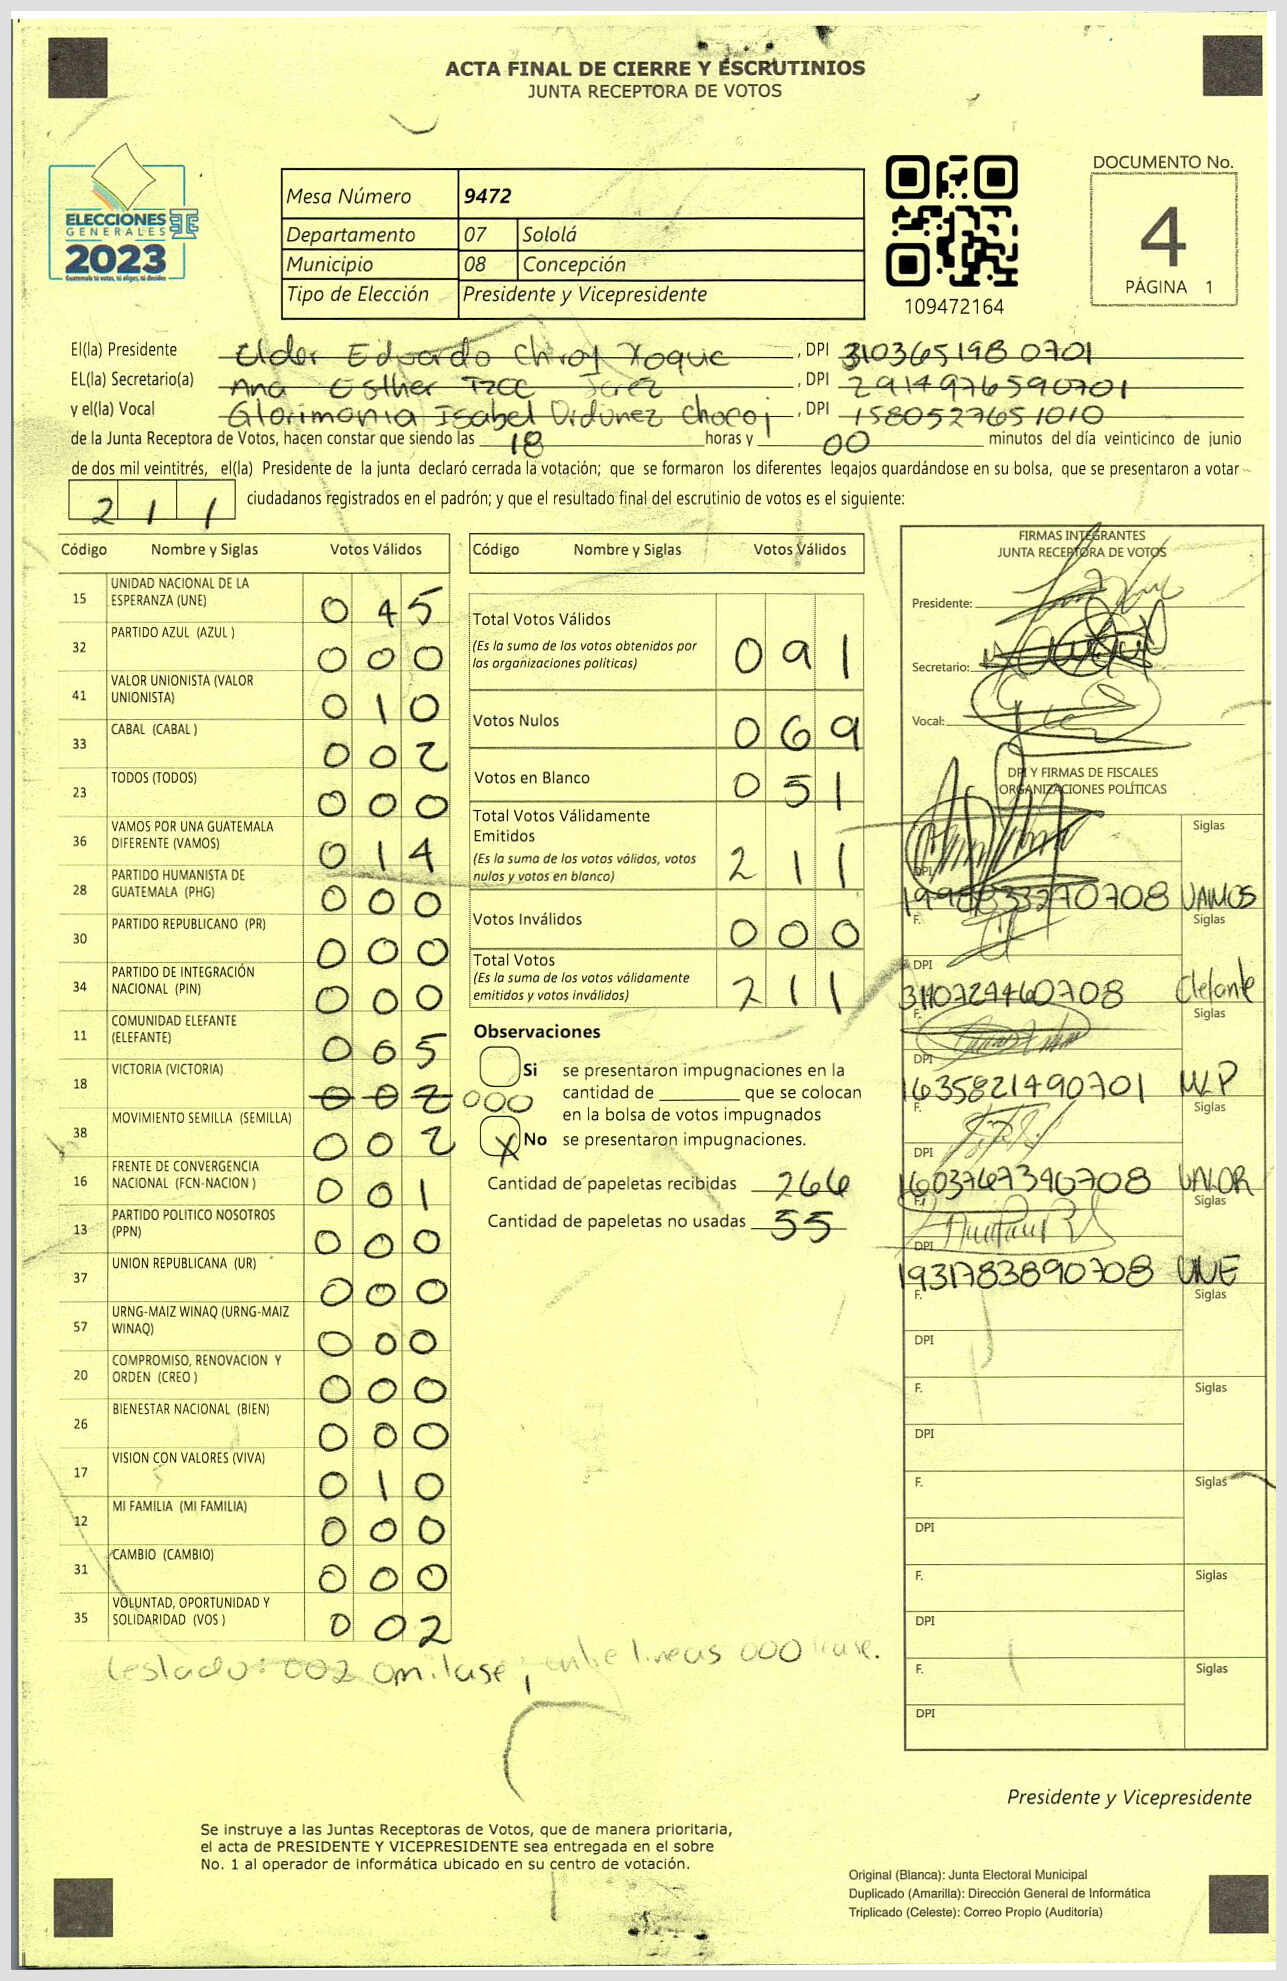 ACTA FINAL DE CIERRE Y ESCRUTINIOS
JUNTA RECEPTORA DE VOTOS
ELECCIONES
GENERALES
2023
Guatemala tú votas, tú eliges, tú decides
Mesa Número 9472
Departamento 07 Sololá
Municipio 08 Concepción
Tipo de Elección Presidente y Vicepresidente
109472164
DOCUMENTO No.
4
PÁGINA 1
El(la) Presidente Elder Eduardo Chiroj Xoque, DPI 310365198 0701
EL(la) Secretario(a) Ana Esther Tzoc Jerez, DPI 2914976590701
y el(la) Vocal Isabel Chocoj, DPI 1580527651010
de la Junta Receptora de Votos, hacen constar que siendo las 18 horas y 00 minutos del día veinticinco de junio
de dos mil veintitrés, el(la) Presidente de la junta declaró cerrada la votación; que se formaron los diferentes legajos guardándose en su bolsa, que se presentaron a votar
211 ciudadanos registrados en el padrón; y que el resultado final del escrutinio de votos es el siguiente:
Código Nombre y Siglas Votos Válidos
15 UNIDAD NACIONAL DE LA ESPERANZA (UNE) 045
32 PARTIDO AZUL (AZUL ) 000
41 VALOR UNIONISTA (VALOR UNIONISTA) 010
33 CABAL (CABAL ) 002
23 TODOS (TODOS) 000
36 VAMOS POR UNA GUATEMALA DIFERENTE (VAMOS) 014
28 PARTIDO HUMANISTA DE GUATEMALA (PHG) 000
30 PARTIDO REPUBLICANO (PR) 000
34 PARTIDO DE INTEGRACIÓN NACIONAL (PIN) 000
11 COMUNIDAD ELEFANTE (ELEFANTE) 005
18 VICTORIA (VICTORIA) 002 000
38 MOVIMIENTO SEMILLA (SEMILLA) 002
16 FRENTE DE CONVERGENCIA NACIONAL (FCN-NACION ) 001
13 PARTIDO POLITICO NOSOTROS (PPN) 000
37 UNION REPUBLICANA (UR) 000
57 URNG-MAIZ WINAQ (URNG-MAIZ WINAQ) 000
20 COMPROMISO, RENOVACION Y ORDEN (CREO ) 000
26 BIENESTAR NACIONAL (BIEN) 000
17 VISION CON VALORES (VIVA) 010
12 MI FAMILIA (MI FAMILIA) 000
31 CAMBIO (CAMBIO) 000
35 VOLUNTAD, OPORTUNIDAD Y SOLIDARIDAD (VOS ) 002
testado: 002 omitase; entre lineas 000 lease.
Código Nombre y Siglas Votos Válidos
Total Votos Válidos 091
(Es la suma de los votos obtenidos por
las organizaciones políticas)
Votos Nulos 069
Votos en Blanco 051
Total Votos Válidamente
Emitidos 211
(Es la suma de los votos válidos, votos
nulos y votos en blanco)
Votos Inválidos 000
Total Votos 211
(Es la suma de los votos válidamente
emitidos y votos inválidos)
Observaciones
Si se presentaron impugnaciones en la
cantidad de ________ que se colocan
en la bolsa de votos impugnados
X No se presentaron impugnaciones.
Cantidad de papeletas recibidas 266
Cantidad de papeletas no usadas 55
FIRMAS INTEGRANTES
JUNTA RECEPTORA DE VOTOS
Presidente:
Secretario:
Vocal:
DPI Y FIRMAS DE FISCALES
ORGANIZACIONES POLÍTICAS
Siglas
DPI
1998833270708 VAMOS
F. Siglas
DPI
3110729460708 Elefante
F. Siglas
DPI
1635821490701 MLP
F. Siglas
DPI
1603767340708 VALOR
F. Siglas
DPI
1931783890708 UNE
F. Siglas
DPI
F. Siglas
DPI
F. Siglas
DPI
F. Siglas
DPI
F. Siglas
DPI
Presidente y Vicepresidente
Se instruye a las Juntas Receptoras de Votos, que de manera prioritaria,
el acta de PRESIDENTE Y VICEPRESIDENTE sea entregada en el sobre
No. 1 al operador de informática ubicado en su centro de votación.
Original (Blanca): Junta Electoral Municipal
Duplicado (Amarilla): Dirección General de Informática
Triplicado (Celeste): Correo Propio (Auditoría)